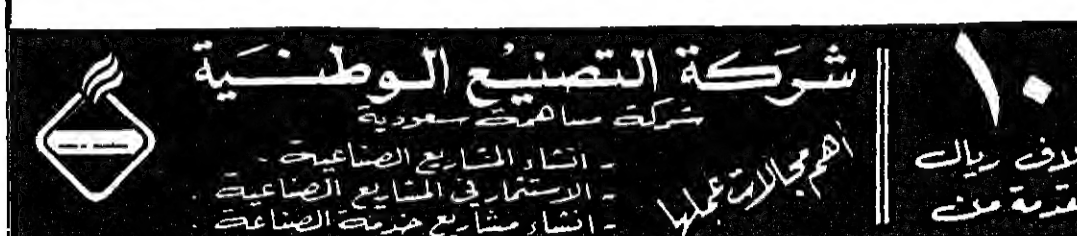 ١٠
لاف ريال
قدمة من
شركة التصنيع الوطنية
شركة مساهمة سعودية
أهم مجالات عملها
- انشاء المشاريع الصناعية .
- الاستثمار في المشاريع الصناعية .
- انشاء مشاريع خدمة الصناعة .